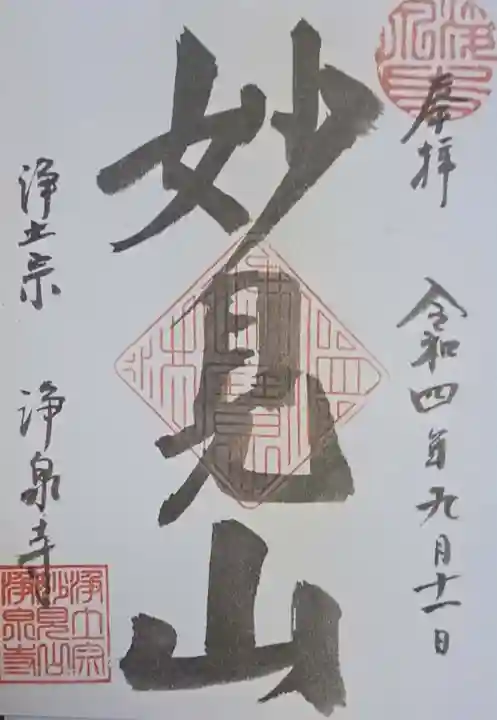 奉拝
令和四年九月十一日
妙見山
浄土宗 浄泉寺
浄土宗
妙見山
浄泉寺